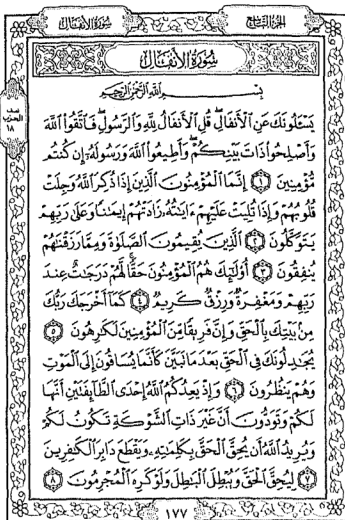 الجزء التاسع
سورة الأنفال
سورة الأنفال
نصف
الحزب
١٨
بسم الله الرحمن الرحيم
يَسْـَٔلُونَكَ عَنِ ٱلْأَنفَالِ ۖ قُلِ ٱلْأَنفَالُ لِلَّهِ وَٱلرَّسُولِ ۖ فَٱتَّقُوا۟ ٱللَّهَ
وَأَصْلِحُوا۟ ذَاتَ بَيْنِكُمْ ۖ وَأَطِيعُوا۟ ٱللَّهَ وَرَسُولَهُۥٓ إِن كُنتُم
مُّؤْمِنِينَ ۝١ إِنَّمَا ٱلْمُؤْمِنُونَ ٱلَّذِينَ إِذَا ذُكِرَ ٱللَّهُ وَجِلَتْ
قُلُوبُهُمْ وَإِذَا تُلِيَتْ عَلَيْهِمْ ءَايَـٰتُهُۥ زَادَتْهُمْ إِيمَـٰنًا وَعَلَىٰ رَبِّهِمْ
يَتَوَكَّلُونَ ۝٢ ٱلَّذِينَ يُقِيمُونَ ٱلصَّلَوٰةَ وَمِمَّا رَزَقْنَـٰهُمْ
يُنفِقُونَ ۝٣ أُو۟لَـٰٓئِكَ هُمُ ٱلْمُؤْمِنُونَ حَقًّا ۚ لَّهُمْ دَرَجَـٰتٌ عِندَ
رَبِّهِمْ وَمَغْفِرَةٌ وَرِزْقٌ كَرِيمٌ ۝٤ كَمَآ أَخْرَجَكَ رَبُّكَ
مِنۢ بَيْتِكَ بِٱلْحَقِّ وَإِنَّ فَرِيقًا مِّنَ ٱلْمُؤْمِنِينَ لَكَـٰرِهُونَ ۝٥
يُجَـٰدِلُونَكَ فِى ٱلْحَقِّ بَعْدَ مَا تَبَيَّنَ كَأَنَّمَا يُسَاقُونَ إِلَى ٱلْمَوْتِ
وَهُمْ يَنظُرُونَ ۝٦ وَإِذْ يَعِدُكُمُ ٱللَّهُ إِحْدَى ٱلطَّآئِفَتَيْنِ أَنَّهَا
لَكُمْ وَتَوَدُّونَ أَنَّ غَيْرَ ذَاتِ ٱلشَّوْكَةِ تَكُونُ لَكُمْ
وَيُرِيدُ ٱللَّهُ أَن يُحِقَّ ٱلْحَقَّ بِكَلِمَـٰتِهِۦ وَيَقْطَعَ دَابِرَ ٱلْكَـٰفِرِينَ
۝٧ لِيُحِقَّ ٱلْحَقَّ وَيُبْطِلَ ٱلْبَـٰطِلَ وَلَوْ كَرِهَ ٱلْمُجْرِمُونَ ۝٨
١٧٧